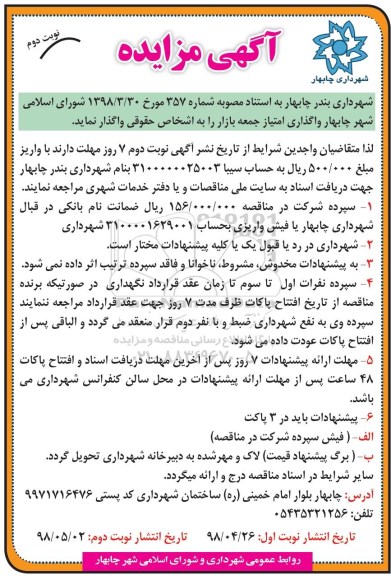 نوبت دوم
آگهی مزایده
شهرداری چابهار
شهرداری بندر چابهار به استناد مصوبه شماره ۳۵۷ مورخ ۱۳۹۸/۳/۳۰ شورای اسلامی
شهر چابهار واگذاری امتیاز جمعه بازار را به اشخاص حقوقی واگذار نماید.
لذا متقاضیان واجدین شرایط از تاریخ نشر آگهی نوبت دوم ۷ روز مهلت دارند با واریز
مبلغ ۵۰۰/۰۰۰ ریال به حساب سیبا ۳۱۰۰۰۰۰۰۲۵۰۰۳ بنام شهرداری بندر چابهار
جهت دریافت اسناد به سایت ملی مناقصات و یا دفتر خدمات شهری مراجعه نمایند.
۱- سپرده شرکت در مناقصه ۱۵۶/۰۰۰/۰۰۰ ریال ضمانت نام بانکی در قبال
شهرداری چابهار یا فیش واریزی بحساب ۳۱۰۰۰۰۱۶۲۹۰۰۱ شهرداری
۲- شهرداری در رد یا قبول یک یا کلیه پیشنهادات مختار است.
۳- به پیشنهادات مخدوش، مشروط، ناخوانا و فاقد سپرده ترتیب اثر داده نمی شود.
۴- سپرده نفرات اول تا سوم تا زمان عقد قرارداد نگهداری در صورتیکه برنده
مناقصه از تاریخ افتتاح پاکات ظرف مدت ۷ روز جهت عقد قرارداد مراجعه ننمایند
سپرده وی به نفع شهرداری ضبط و با نفر دوم قرار منعقد می گردد و الباقی پس از
افتتاح پاکات عودت داده می شود.
۵- مهلت ارائه پیشنهادات ۷ روز پس از آخرین مهلت دریافت اسناد و افتتاح پاکات
۴۸ ساعت پس از مهلت ارائه پیشنهادات در محل سالن کنفرانس شهرداری می
باشد.
۶- پیشنهادات باید در ۳ پاکت
الف- ( فیش سپرده شرکت در مناقصه)
ب- ( برگ پیشنهاد قیمت) لاک و مهرشده به دبیرخانه شهرداری تحویل گردد.
سایر شرایط در اسناد مناقصه درج و ارائه میگردد.
آدرس: چابهار بلوار امام خمینی (ره) ساختمان شهرداری کد پستی ۹۹۷۱۷۱۶۴۷۶
تلفن: ۰۵۴۳۵۳۲۱۲۵۶
تاریخ انتشار نوبت اول: ۹۸/۰۴/۲۶ تاریخ انتشار نوبت دوم: ۹۸/۰۵/۰۲
روابط عمومی شهرداری و شورای اسلامی شهر چابهار